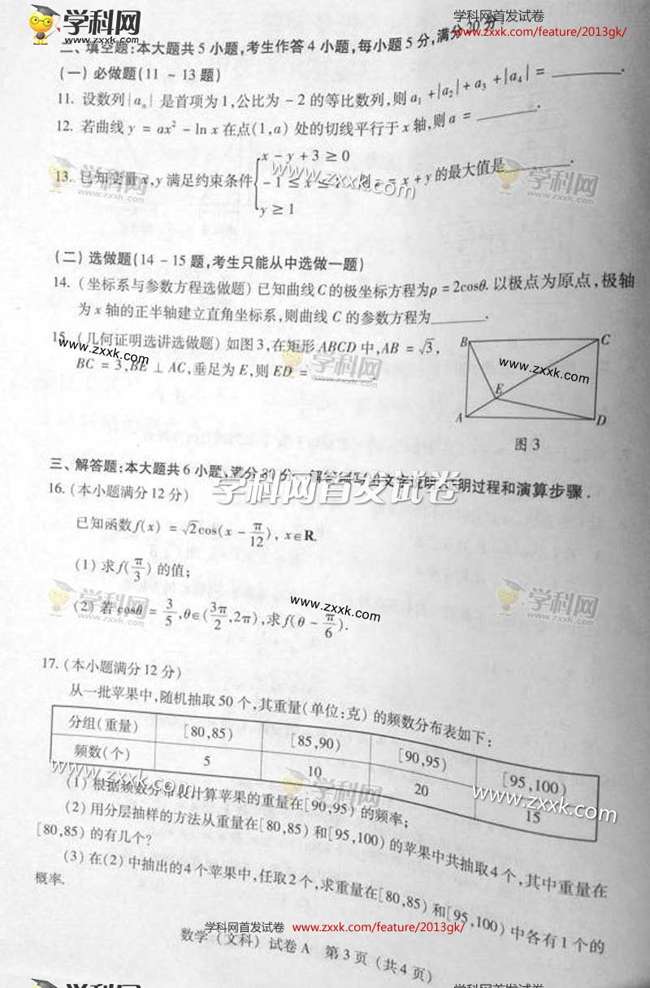 学科网
www.zxxk.com
学科网首发试卷
www.zxxk.com/feature/2013gk/
二、填空题:本大题共5小题,考生作答4小题,每小题5分,满分20分.
(一) 必做题(11 ~ 13题)
11. 设数列{aₙ} 是首项为1,公比为 -2 的等比数列,则 a₁ + |a₂| + a₃ + |a₄| = ________.
12. 若曲线 y = ax² - ln x 在点(1,a) 处的切线平行于 x 轴,则 a = ________.
13. 已知变量 x,y 满足约束条件{x - y + 3 ≥ 0
-1 ≤ x ≤ 则 z = x + y 的最大值是________.
y ≥ 1
学科网
www.zxxk.com
www.zxxk.com
学科网
www.zxxk.com
(二) 选做题(14 - 15题,考生只能从中选做一题)
14. (坐标系与参数方程选做题) 已知曲线 C 的极坐标方程为 ρ = 2cosθ. 以极点为原点,极轴
为 x 轴的正半轴建立直角坐标系,则曲线 C 的参数方程为________.
15. (几何证明选讲选做题) 如图3,在矩形 ABCD 中,AB = √3,
BC = 3,BE ⊥ AC,垂足为 E,则 ED =
www.zxxk.com
学科网
www.zxxk.com
B C
www.zxxk.com
E
A D
图 3
三、解答题:本大题共6小题,满分80分. 解答须写出文字说明、证明过程和演算步骤.
学科网首发试卷
16. (本小题满分12分)
已知函数 f(x) = √2cos(x - π/12), x∈R.
(1) 求 f(π/3) 的值;
(2) 若 cosθ = 3/5, θ∈(3π/2, 2π), 求 f(θ - π/6).
学科网
www.zxxk.com
www.zxxk.com
学科网
www.zxxk.com
17. (本小题满分12分)
从一批苹果中,随机抽取50个,其重量(单位:克) 的频数分布表如下:
分组(重量) [80,85) [85,90) [90,95) [95,100)
频数(个) 5 10 20 15
www.zxxk.com
学科网
www.zxxk.com
www.zxxk.com
(1) 根据频数分布表计算苹果的重量在[90,95) 的频率;
(2) 用分层抽样的方法从重量在[80,85) 和[95,100) 的苹果中共抽取4个,其中重量在
[80,85) 的有几个?
(3) 在(2) 中抽出的4个苹果中,任取2个,求重量在[80,85) 和[95,100) 中各有1个的
概率.
学科网首发试卷 www.zxxk.com/feature/2013gk/
数学(文科) 试卷A 第3页 (共4页)
学科网
学科网首发试卷